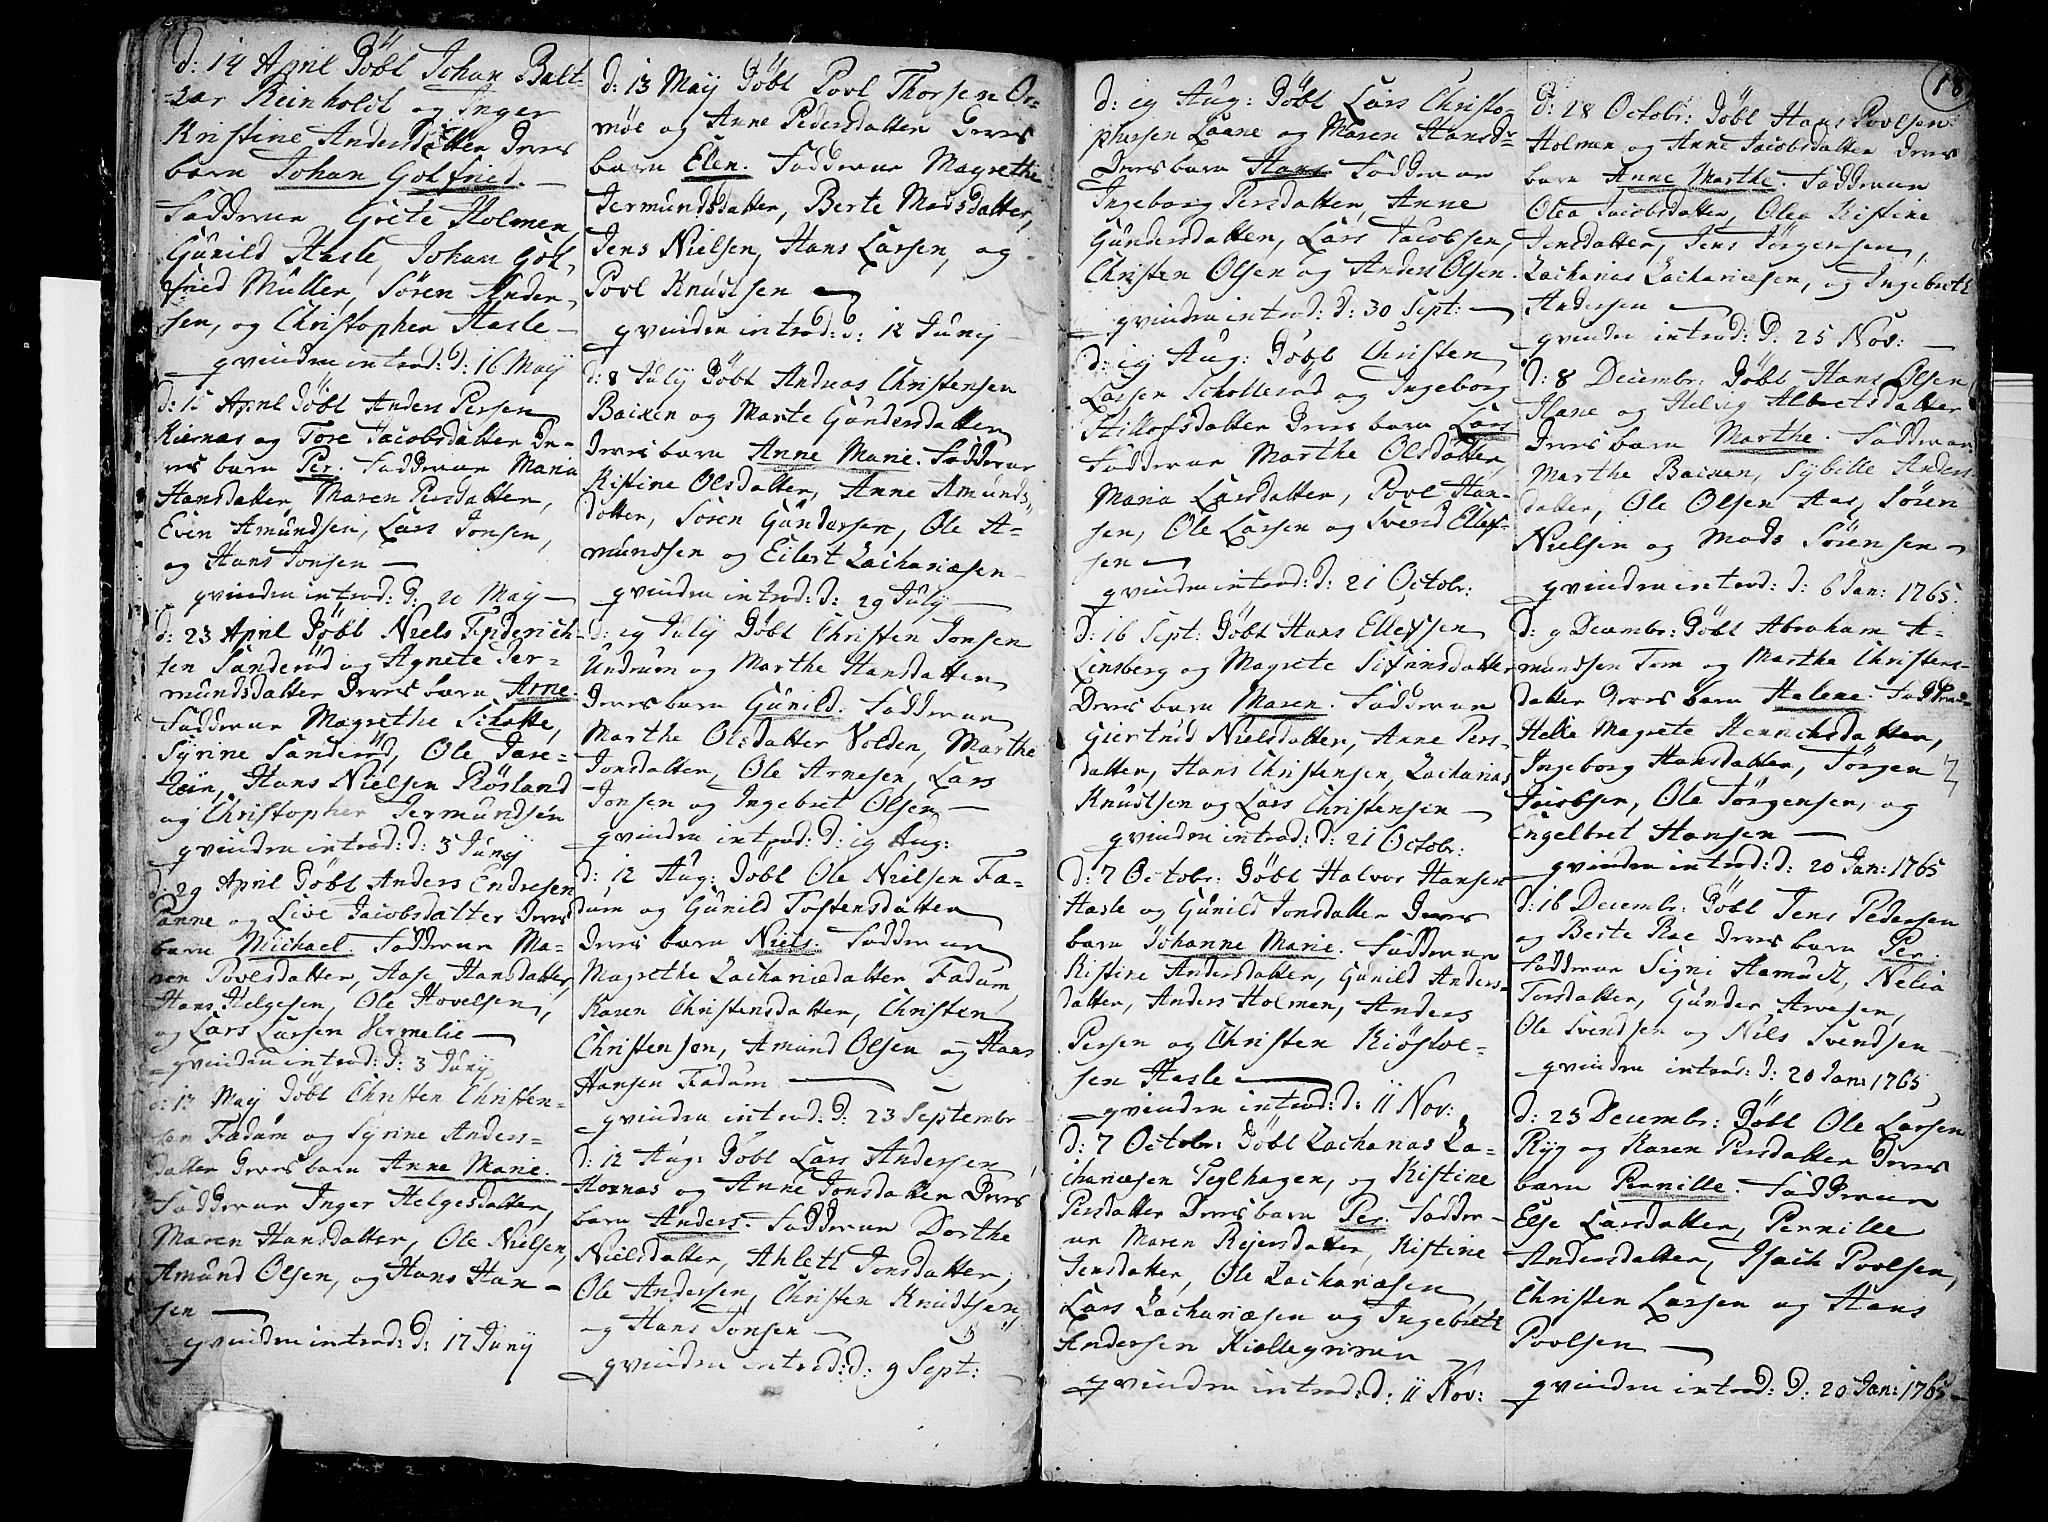 d: 14 April Döbt Johan Balt-
-zar Reinholdt og Inger
Kristine Andersdatter Deres
barn Johan Gotfried. —
Fadderne Grete Holmen,
Gunild Hasle, Johan Got-
fried Müller, Sören Ander-
sen, og Christopher Hasle —
qvinden introd: d: 16 Maij
d: 15 April Döbt Anders Persen
Kiernæs og Tore Jacobsdatter De-
res barn Per. Fadderne Maria
Hansdatter, Maren Persdatter,
Even Amundsen, Lars Jonsen,
og Hans Jonsen —
qvinden introd: d: 20 Maij —
d: 23 April Döbt Niels Friderich-
sen Sanderöd og Agnete Jer-
mundsdatter Deres barn Arne.
Fadderne Magrethe Schotte,
Syrine Sanderöd, Ole Jare-
teien, Hans Nielsen Röesland
og Christopher Jermundsen
qvinden introd: d: 3 Junij
d: 29 April Döbt Anders Endresen
Panne og Live Jacobsdatter Deres
barn Michael. Fadderne Ma-
ren Povlsdatter, Aase Hansdatter,
Hans Helgesen, Ole Hovelsen,
og Lars Larsen Vermelie —
qvinden introd: d: 3 Junij
d: 13 Maij Döbt Christen Christen-
sen Fadum og Syrine Anders-
datter Deres barn Anne Marie.
Fadderne Inger Helgesdatter,
Maren Hansdatter, Ole Nielsen,
Amund Olsen, og Hans Han-
sen —
qvinden introd: d: 17 Junij
d: 13 Maij Döbt Povl Thorsen Or-
möe og Anne Pedersdatter Deres
barn Elen. Fadderne Magrethe
Jermundsdatter, Berte Madsdatter,
Jens Nielsen, Hans Larsen, og
Povl Knudtsen —
qvinden introd: d: 12 Junij
d: 8 Julij Döbt Andreas Christensen
Baixen og Marte Gundersdatter
Deres barn Anne Marie. Fadderne
Kistine Olsdatter, Anne Amunds-
datter, Sören Gundersen, Ole A-
mundsen og Eilert Zachariæsen —
qvinden introd: d: 29 Julij —
d: 19 Julij Döbt Christen Jonsen
Undrum og Marthe Hansdatter
Deres barn Gunild. Fadderne
Marthe Olsdatter Volden, Marthe
Jonsdatter, Ole Arnesen, Lars
Jonsen og Ingebret Olsen —
qvinden introd: d: 19 Aug:
d: 12 Aug: Döbt Ole Nielsen Fa-
dum og Gunild Tostensdatter
Deres barn Niels. Fadderne
Magrethe Zachariædatter Fadum,
Karen Christensdatter, Christen
Christensen, Amund Olsen og Hans
Hansen Fadum —
qvinden introd: d: 23 Septembr
d: 12 Aug: Döbt Lars Andersen
Hornæs og Anne Jonsdatter Deres
barn Anders. Fadderne Dorthe
Nielsdatter, Ahlett Jonsdatter,
Ole Andersen, Christen Knudtsen,
og Hans Jonsen —
qvinden introd: d: 9 Sept: —
18
d: 19 Aug: Döbt Lars Christo-
phersen Laane og Maren Hansdr
Deres barn Hans. Fadderne
Ingeborg Persdatter, Anne
Gundersdatter, Lars Jacobsen,
Christen Olsen og Anders Olsen.
qvinden introd: d: 30 Sept: —
d: 19 Aug: Döbt Christen
Larsen Scholleröd og Ingeborg
Hillofsdatter Deres barn Lars
Fadderne Marthe Olsdatter,
Maria Larsdatter, Povl Han-
sen, Ole Larsen og Svend Ellef-
sen —
qvinden introd: d: 21 Octobr:
d: 16 Sept: Döbt Hans Ellefsen
Linsberg og Magrete Sifrinsdatter
Deres barn Maren. Fadderne
Giertrud Nielsdatter, Anne Pers-
datter, Hans Christensen, Zacharias
Knudtsen og Lars Christensen —
qvinden introd: d: 21 Octobr:
d: 7 Octobr: Döbt Halvor Hansen
Hasle og Gunild Jonsdatter Deres
barn Johanne Marie. Fadderne
Kistine Andersdatter, Gunild Anders-
datter, Anders Holmen, Anders
Persen og Christen Kiöstol-
sen Hasle —
qvinden introd: d: 11 Nov:
d: 7 Octobr: Döbt Zacharias Za-
chariæsen Teglhagen, og Kistine
Persdatter Deres barn Per. Fadder-
ne Maren Reiersdatter, Kistine
Jensdatter, Ole Zachariæsen,
Lars Zachariæsen og Ingebreth
Andersen Kiellegrinen —
qvinden introd: d: 11 Nov:
d: 28 Octobr: Döbt Hans Povlsen
Holmen og Anne Jacobsdatter Deres
barn Anne Marthe. Fadderne
Olea Jacobsdatter, Olea Kistine
Jensdatter, Jens Jörgensen,
Zacharias Zachariæsen, og Ingebreth
Andersen —
qvinden introd: d: 25 Nov: —
d: 8 Decembr: Döbt Hans Olsen
Hane og Helvig Albretsdatter
Deres barn Marthe. Fadderne
Marthe Baixen, Sybille Anders
datter, Ole Olsen Aas, Sören
Nielsen og Mads Sörensen —
qvinden introd: d: 6 Jan: 1765.
d: 9 Decembr: Döbt Abraham A-
mundsen Tem og Marthe Christens-
datter Deres barn Helene. Fadderne
Helle Magrete Henrichsdatter,
Ingeborg Hansdatter, Jörgen
Jacobsen, Ole Jörgensen, og
Engelbret Hansen —
qvinden introd: d: 20 Jan: 1765
d: 16 Decembr: Döbt Jens Pedersen
og Berte Roe Deres barn Per.
Fadderne Signi Aamudt, Nelia
Torsdatter, Gunder Arvesen,
Ole Svendsen og Nils Svendsen —
qvinden introd: d: 20 Jan: 1765
d: 23 Decembr: Döbt Ole Larsen
Ryg og Karen Persdatter Deres
barn Pernille. Fadderne
Else Larsdatter, Pernille
Andersdatter, Isach Povlsen,
Christen Larsen og Hans
Povlsen —
qvinden introd: d: 20 Jan: 1765 —